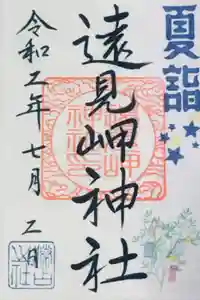 夏詣
遠見岬神社
令和二年七月二日